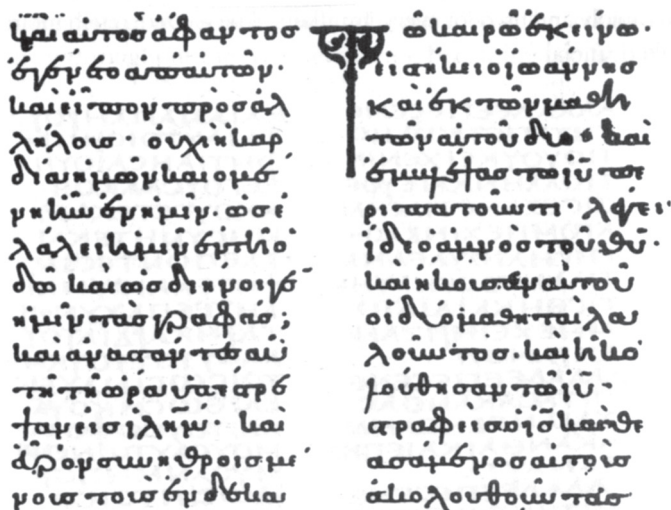 καὶ αυτοσ ἀφαντοσ
ἐγένετο απαυτῶν·
καὶ εἶπον προσ ἀλ
λήλουσ· ὀυχὶ ἡ καρ
δία ἡμῶν καιομέ
νη ἦν ἐν ἡμῖν· ὡσ ἐ
λάλει ἡμῖν ἐν τῆ ὁ
δῶ καὶ ὡσ διήνοιγε
ἡμῖν τὰσ γραφάσ;
καὶ ἀναστάντεσ αὐ
τῆ τῆ ὥρα ὑπέστρε
ψαν εισ ἰλῆμ· καὶ
εὗρον συνηθροισμέ
νουσ τουσ ἕνδεκα
Τῶ καιρῶ ἐκείνω·
εἱστήκει ὁ ἰωάννησ
καὶ ἐκ τῶν μαθη
τῶν αυτοῦ δύο· καὶ
ἐμβλέψασ τῶ ἰῦ πε
ριπατοῦντι· λέγει·
ἴδε ὁ αμνοσ τοῦ θῦ·
καὶ ἤκουσαν αυτοῦ
οἱ δύο μαθηταὶ λα
λοῦντοσ· καὶ ἠκο
λούθησαν τῶ ἰῦ·
στραφεὶσ ὁ ἰσ καὶ θε
ασάμενοσ αυτοὺσ
ἀκολουθοῦντασ